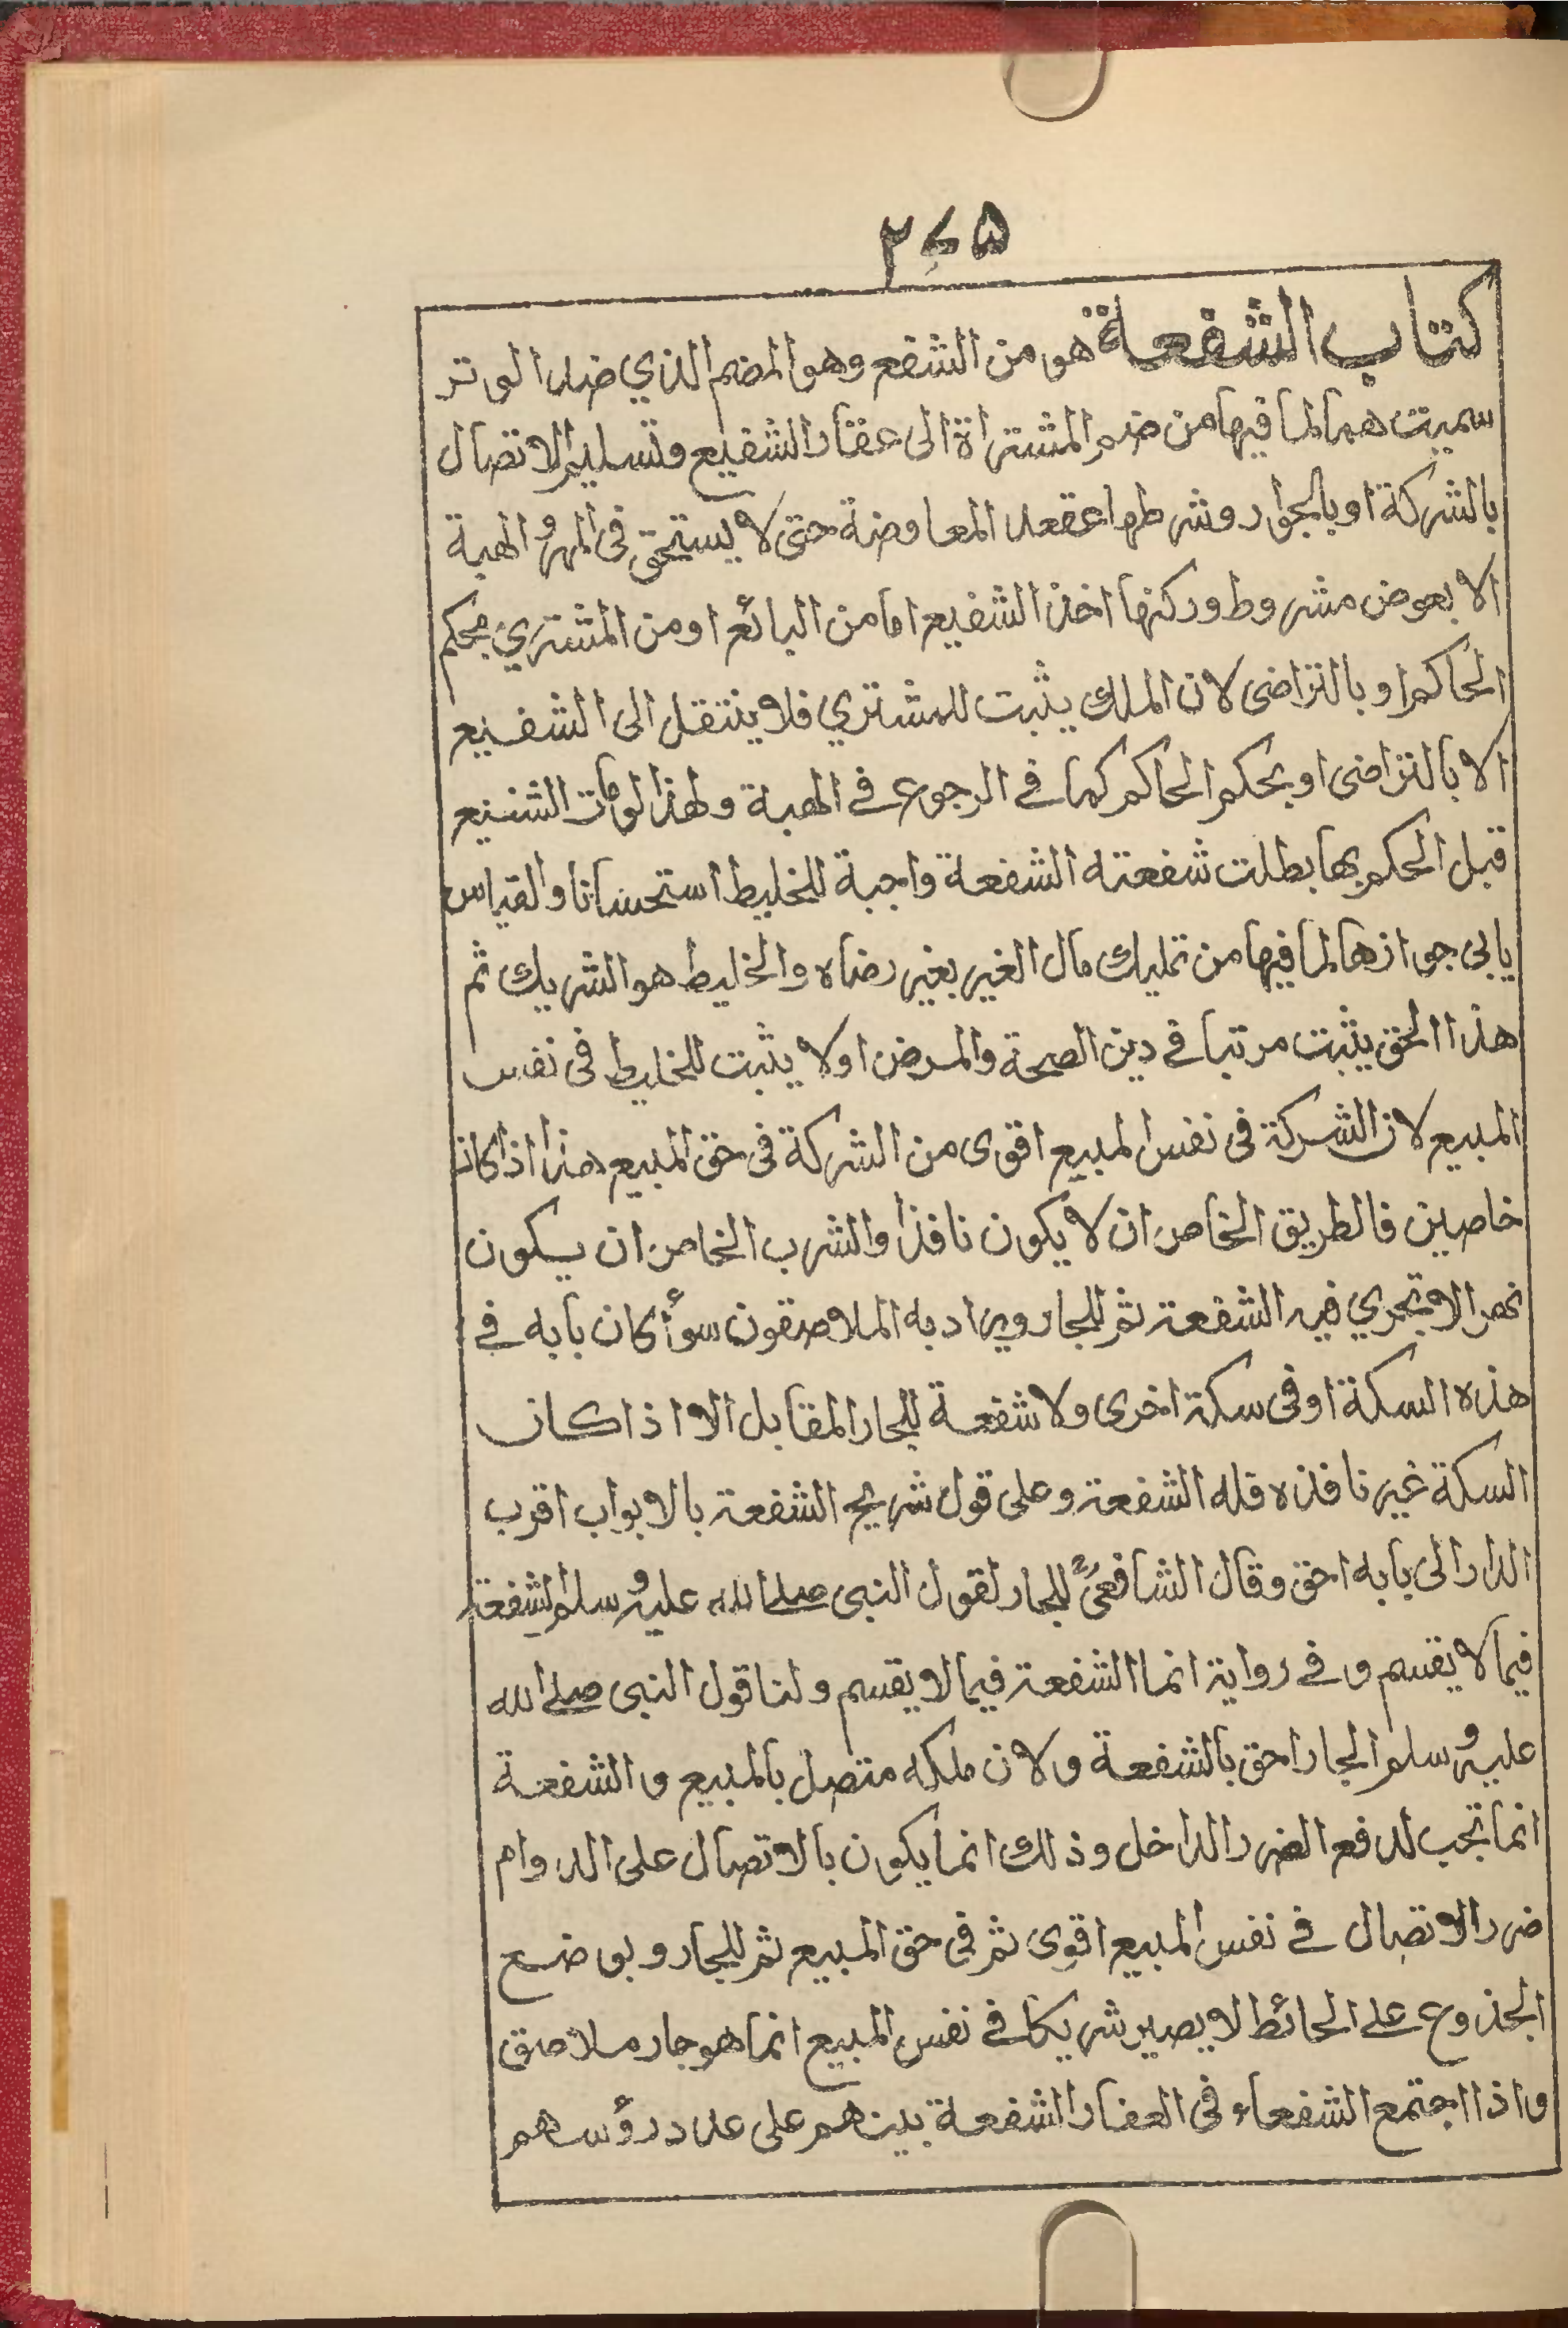 ۲۷۵
كتاب الشفعة هو من الشفع وهو المضم الذي ضد الوتر
سميت هما لما فيها من ضم المشتراة الى عقار الشفيع وتسليم الاتصال
بالشركة او بالجوار وشرطها عقد المعاوضة حتى لا يستحق فى المهر و الهبة
الا بعوض مشروط وركنها اخذ الشفيع اما من البائع او من المشتري بحكم
الحاكم او بالتراضى لان الملك يثبت للمشتري فلا ينتقل الى الشفيع
الا بالتراضى او بحكم الحاكم كما في الرجوع في الهبة ولهذا لو مات الشفيع
قبل الحكم بها بطلت شفعته الشفعة واجبة للخليط استحسانا والقياس
يابى جوازها لما فيها من تمليك مال الغير بغير رضاه والخليط هو الشريك ثم
هذا الحق يثبت مرتبا في دين الصحة والمرض اولا يثبت للخليط فى نفس
المبيع لان الشركة فى نفس المبيع اقوى من الشركة فى حق المبيع هذا اذا كانا
خاصين فالطريق الخاص ان لا يكون نافذا والشرب الخاص ان يكون
نهر الا تجري فيه الشفعة ثم للجار ويراد به الملاصقون سوأ كان بابه في
هذه السكة او فى سكة اخرى ولا شفعة للجار المقابل الا اذا كان
السكة غير نافذه فله الشفعة وعلى قول شريح الشفعة بالابواب اقرب
الدار الى بابه احق وقال الشافعىؒ للجار لقول النبى صلى الله عليه وسلم الشفعة
فيما لا يقسم و في رواية انما الشفعة فيما لا يقسم ولنا قول النبى صلى الله
عليه وسلم الجار احق بالشفعة ولان ملكه متصل بالمبيع و الشفعة
انما تجب لدفع الضرر الداخل وذلك انما يكون بالاتصال على الدوام
ضرر الاتصال في نفس المبيع اقوى ثم فى حق المبيع ثم للجار وبوضع
الجذوع على الحائط لا يصير شريكا في نفس المبيع انما هو جار ملاصق
واذا اجتمع الشفعاء فى العقار الشفعة بينهم على عدد رؤسهم